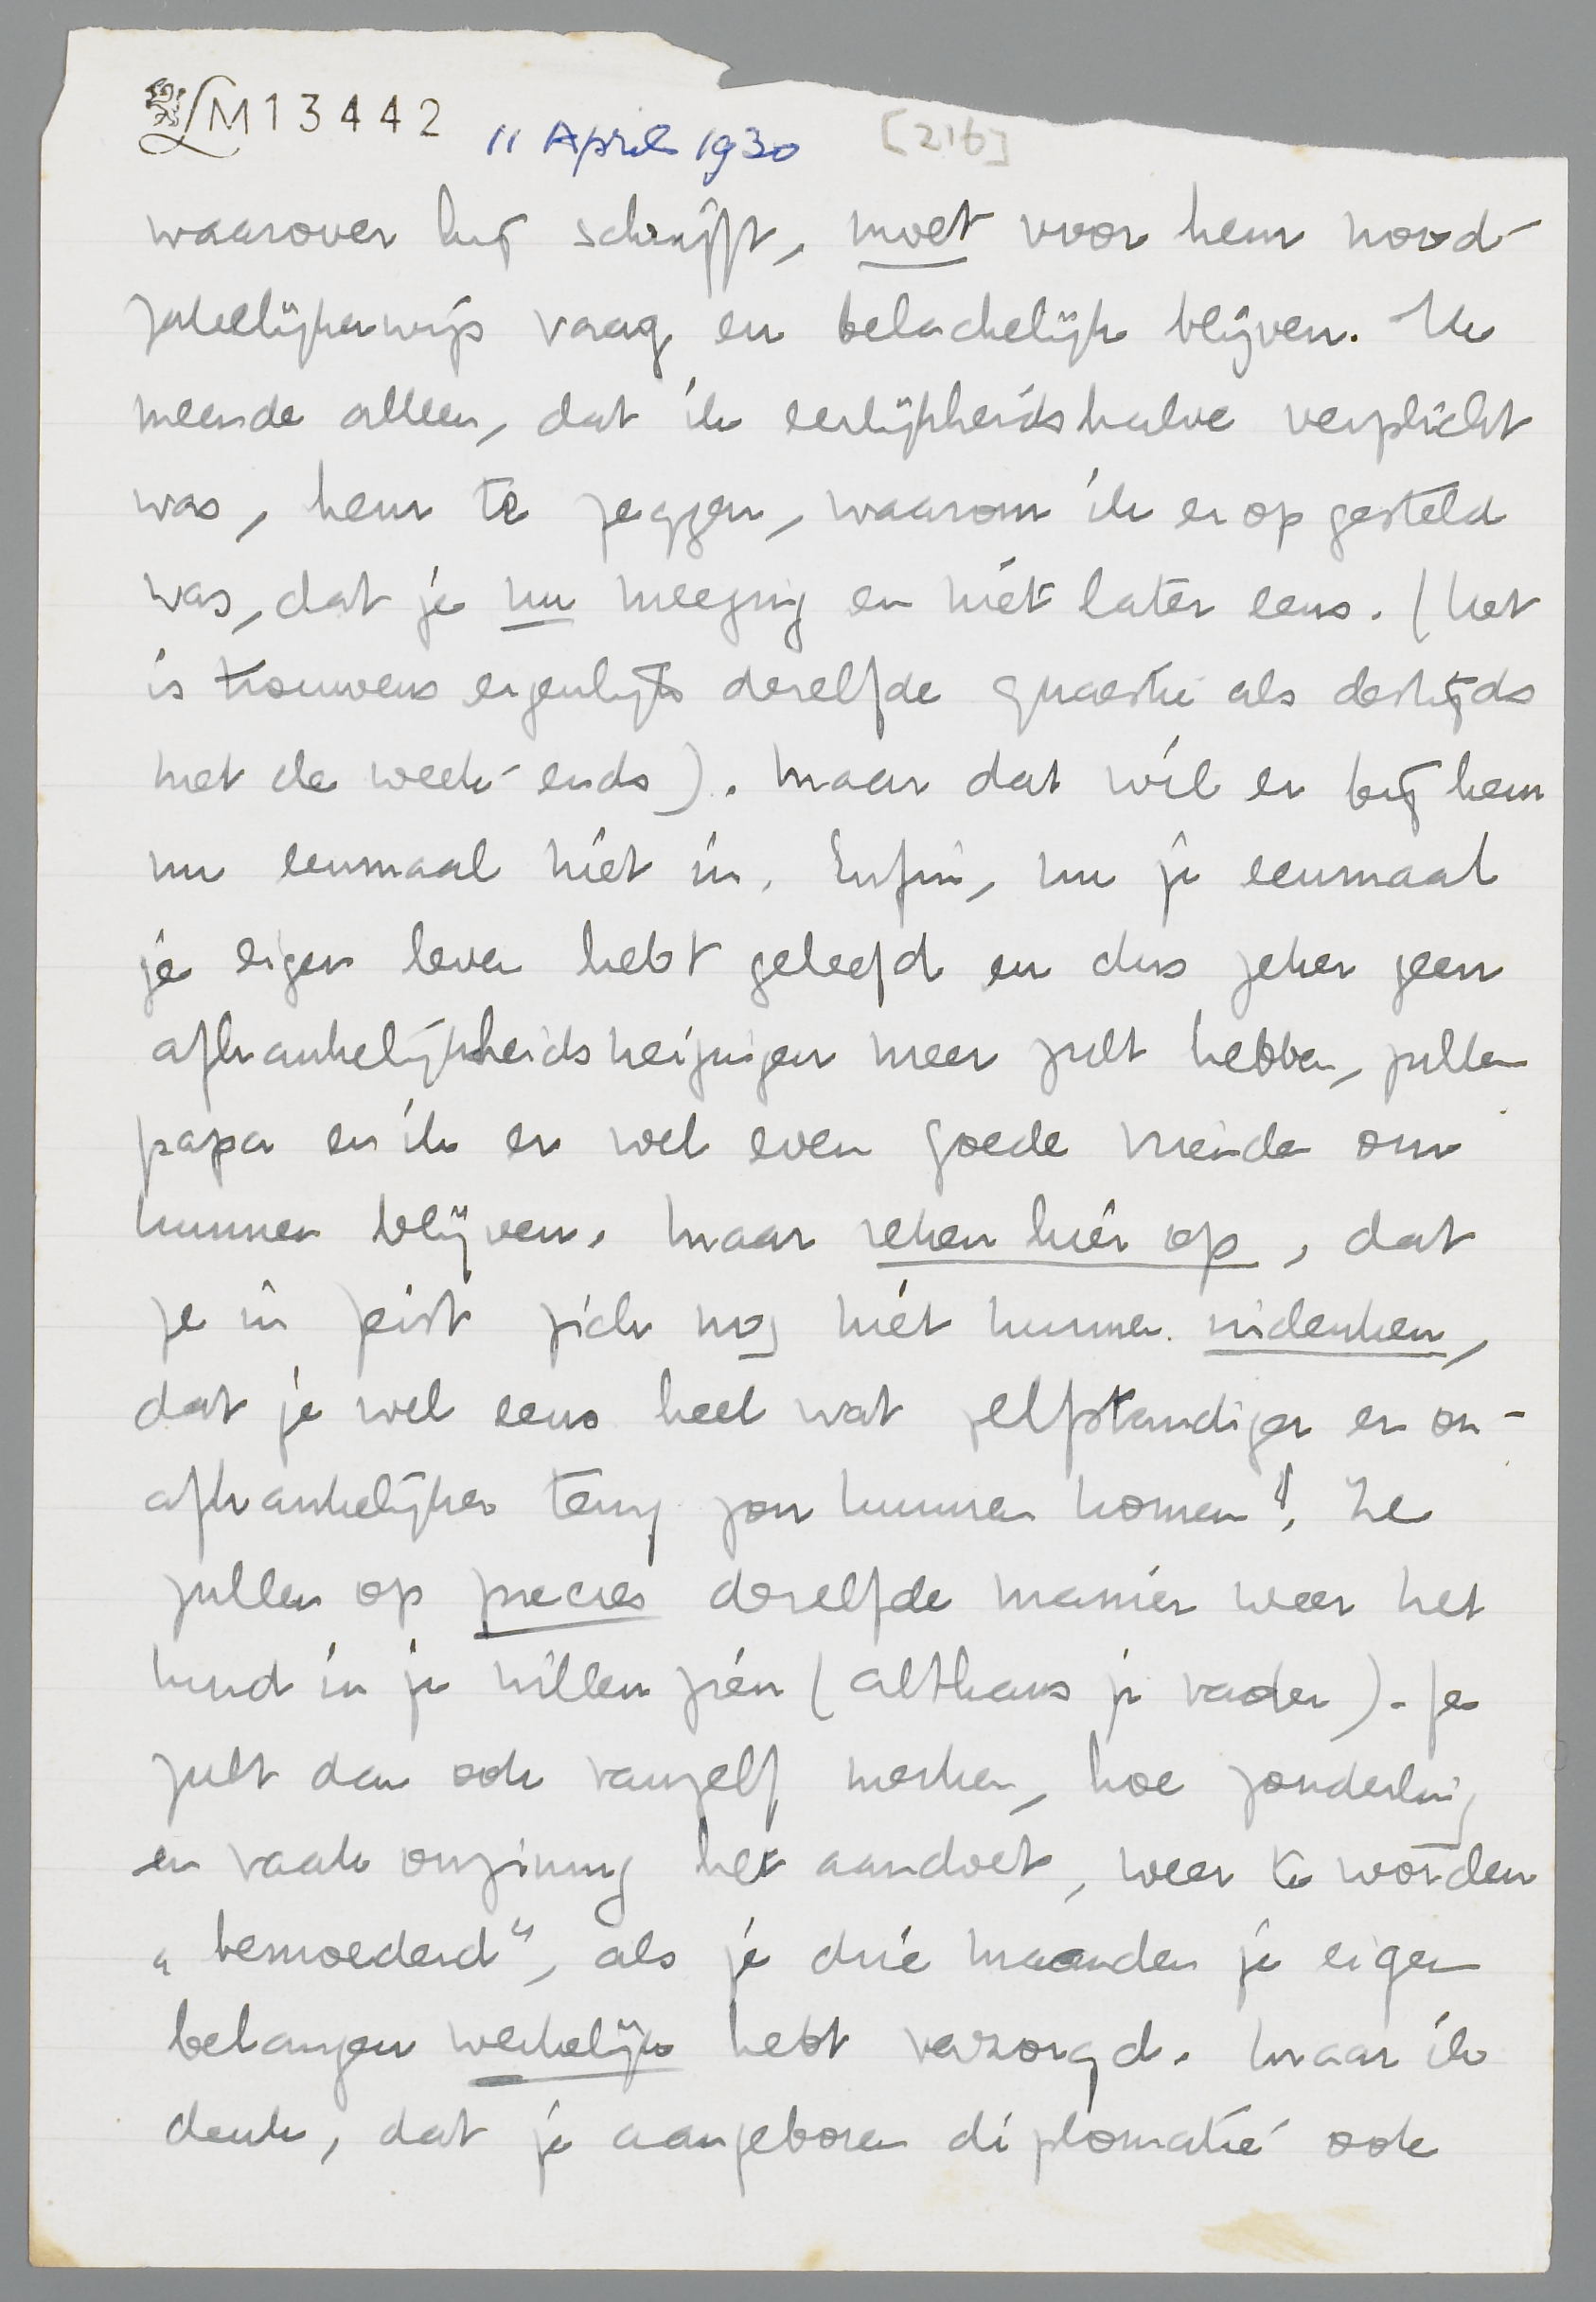 LM13442 11 April 1930 [216]
waarover hij schrijft, moet voor hem nood-
zakelijkerwijs vaag en belachelijk blijven. Ik
meende alleen, dat ik eerlijkheidshalve verplicht
was, hem te zeggen, waarom ik er op gesteld
was, dat je nu meeging en niet later eens. (het
is trouwens eigenlijk dezelfde quaestie als destijds
met de week-ends). Maar dat wil er bij hem
nu eenmaal niet in. Enfin, nu je eenmaal
je eigen leven hebt geleefd en dus zeker geen
afhankelijkheidsneigingen meer zult hebben, zullen
papa en ik er wel even goede vrienden om
kunnen blijven. Maar reken hier op, dat
ze in Zeist zich nog niet kunnen indenken,
dat je wel eens heel wat zelfstandiger en on-
afhankelijker terug zou kunnen komen! Ze
zullen op precies dezelfde manier weer het
kind in je willen zien (althans je vader). Je
zult dan ook vanzelf merken, hoe zonderling
en vaak onzinnig het aandoet, weer te worden
„bemoederd", als je drie maanden je eigen
belangen werkelijk hebt verzorgd. Maar ik
denk, dat je aangeboren diplomatie ook